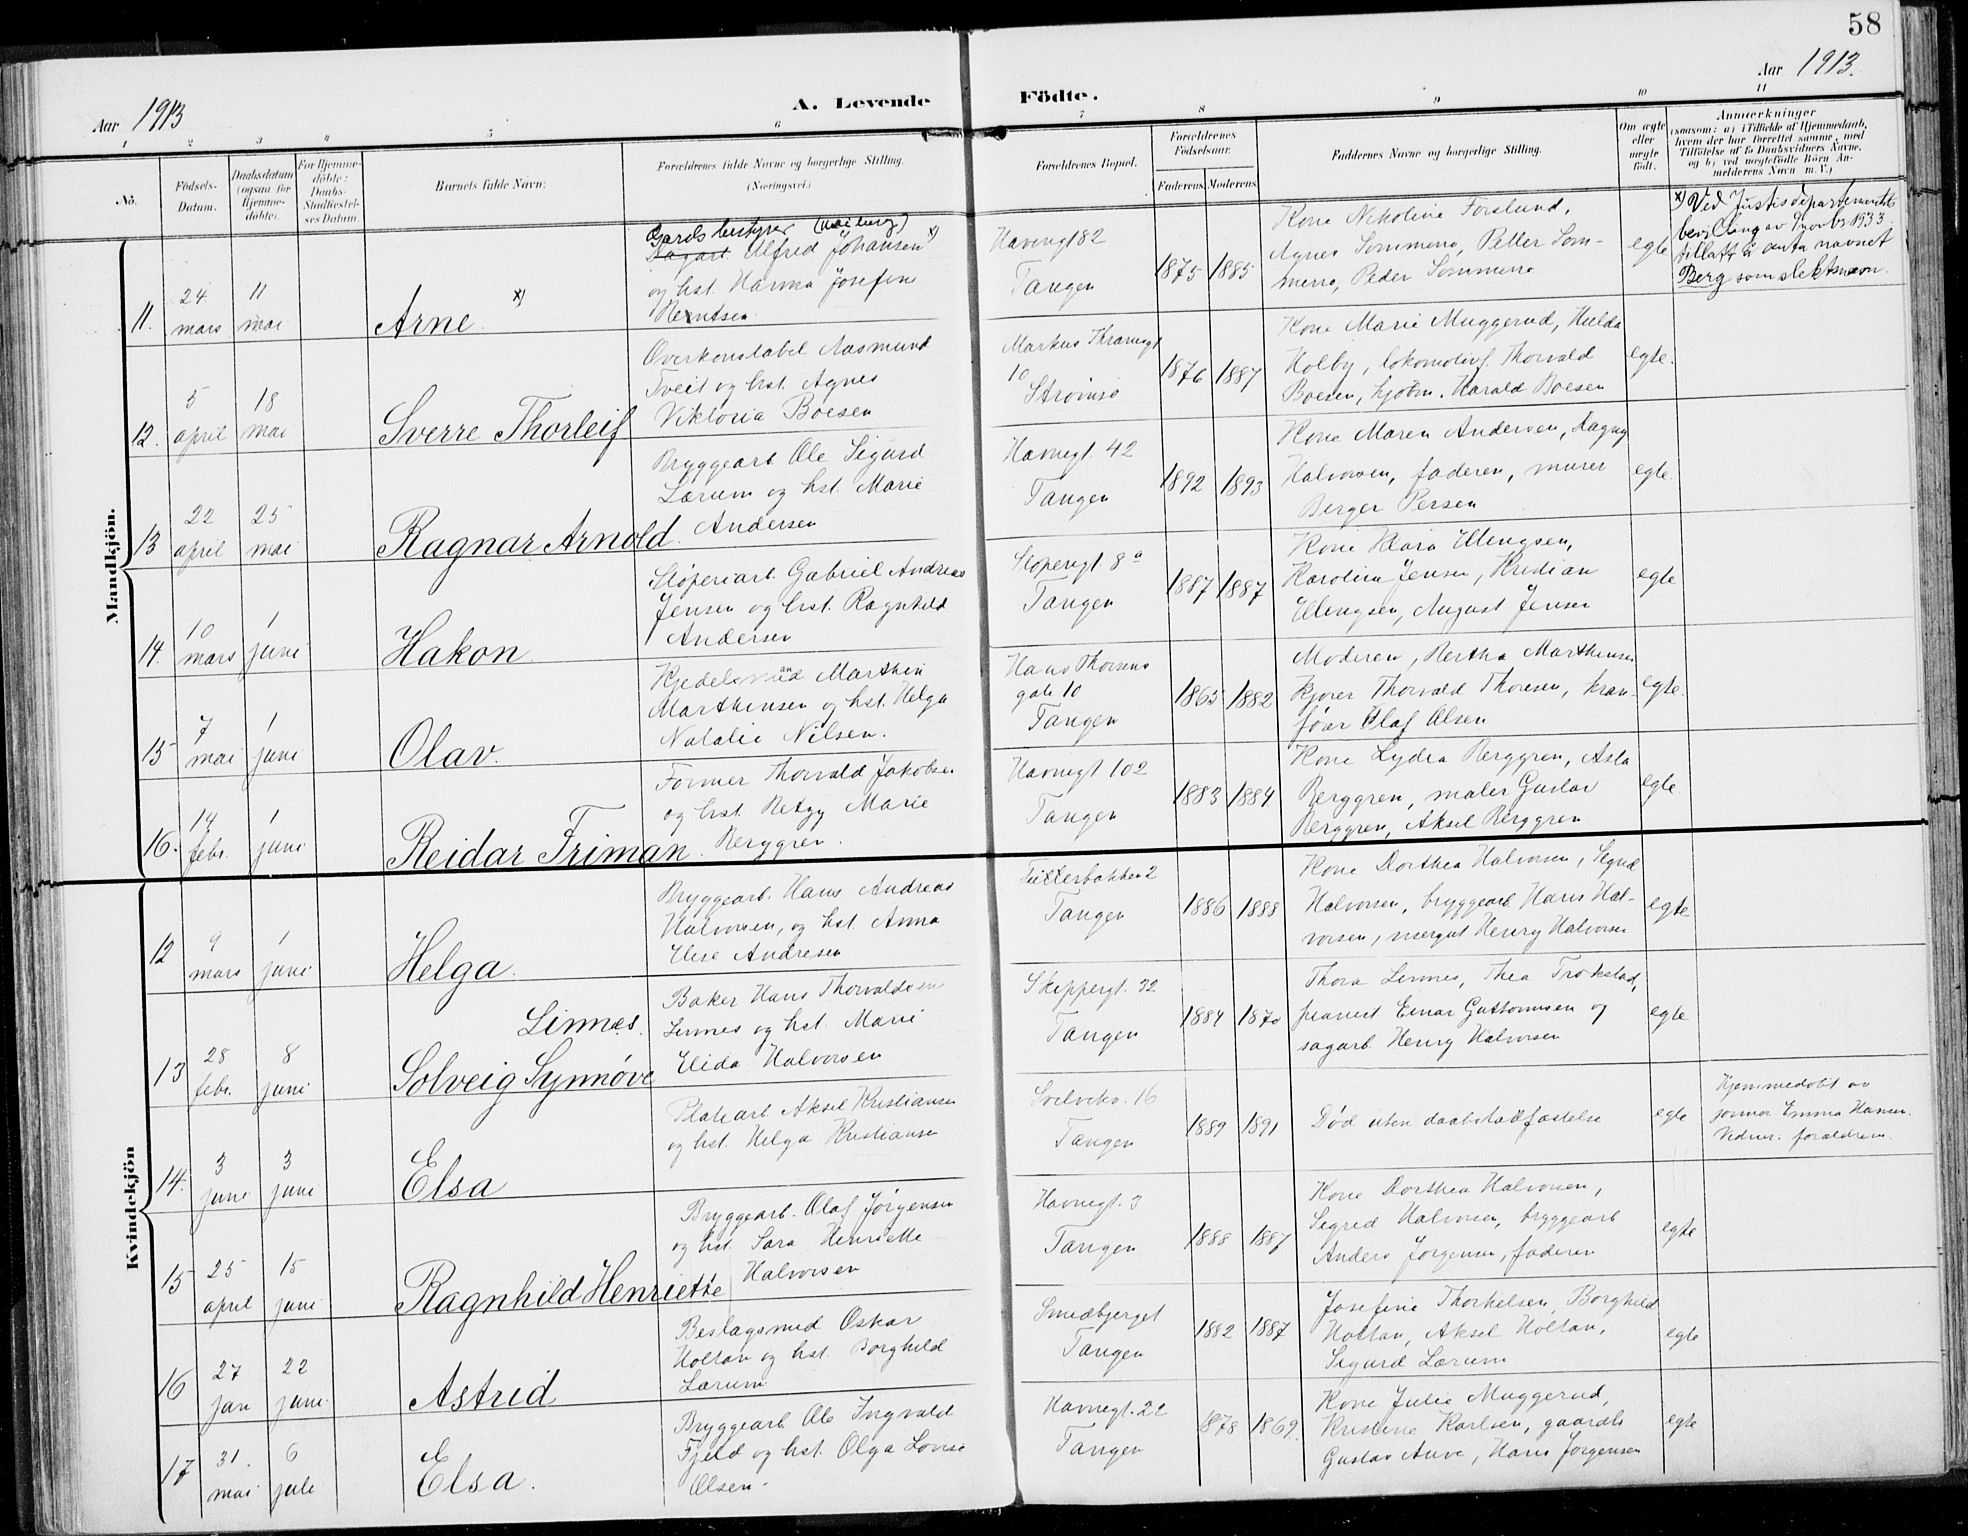 58
Aar 1913.
Aar 1913
A. Levende Födte.
1 2 3 4 5 6 7 8 9 10 11
No.
Födsels-Datum.
Daabsdatum (ogsaa for Hjemme-döbte).
For Hjemme-döbte: Daabs-Stadfæstel-ses Datum.
Barnets fulde Navn.
Forældrenes fulde Navne og borgerlige Stilling.
(Næringsvei.)
Forældrenes Bopæl.
Forældrenes Födselsaar.
Faderens. Moderens.
Faddernes Navne og borgerlige Stilling.
Om ægte eller uægte födt.
Anmærkninger
(saasom: a) i Tilfælde af Hjemmedaab, hvem der har forrettet samme, med Tilföielse af to Daabsvidners Navne, og b) ved uægtefödte Börn Anmelderens Navn m. V.)
Mandkjön.
11. 24 mars 11 mai
Arne x)
Gardsbestyrer
Alfred Johansen x)
og hst. Harma Josefine
Berntsen
Havnegt 82
Tangen
1875 1885
Kone Nikoline Forslund,
Agnes Sommerro, Petter Som-
merro, Peder Sommerro
egte
x) Ved Justisdepartementets
bevilling av 9 novbr 1933
tillatt å anta navnet
Berg som slektsnavn.
12. 5 april 18 mai
Sverre Thorleif
Overkonstabel Aasmund
Tveit og hst. Agnes
Viktoria Boesen
Markus Thranesgt
10
Strømsø
1876 1887
Kone Marie Muggerud, Hulda
Holby, lokomotivf. Thorvald
Boesen, kjøbm. Harald Boesen
egte.
13 22 april 25 mai
Ragnar Arnold
Bryggearb. Ole Sigurd
Lærum og hst. Marie
Andersen
Havnegt. 42
Tangen
1892 1893
Kone Maren Andersen, Dagny
Halvorsen, faderen, murer
Berger Persen
egte.
14. 10 mars 1 juni
Hakon
Støperiarb. Gabriel Andreas
Jensen og hst. Ragnhild
Andersen
Støperigt. 8 a
Tangen
1887 1887
Kone Klara Ellengsen,
Karoline Jensen, Kristian
Ellengsen, August Jensen
egte
15 7 mai 1 juni
Olav.
Kjedelsmed Marthin
Marthinsen og hst. Helga
Natalie Nilsen.
Hans Thorsens
gate 10
Tangen
1865 1882
Moderen, Bertha Marthinsen
kjører Thorvald Thoresen, kran-
fører Olaf Olsen
egte.
16. 14 febr. 1 juni
Reidar Friman
Former Thorvald Jakobsen
og hst. Betzy Marie
Berggren.
Havnegt 102
Tangen
1883 1884
Kone Lydia Berggren, Asta
Berggren, maler Gustav
Berggren, Aksel Berggren
egte
Kvindekjön
12 9 mars 1 juni
Helga
Bryggearb. Hans Andreas
Halvorsen, og hst. Anna
Elise Andresen
Tutterbakken 2
Tangen
1886 1888
Kone Dorthea Halvorsen, Sigrid
Halvorsen, bryggearb Hans Hal-
vorsen, Henry Halvorsen
egte
13 28 febr. 8 juni
Linnæs.
Solveig Synnøve
Baker Hans Thorvaldsen
Linnes og hst. Marie
Elida Halvorsen
Skippergt. 22
Tangen
1884 1870
Thora Linnes, Thea Trøkstad,
pianist Einar Guttormsen og
sagarb. Henry Halvorsen
egte
14. 3 juni 3 juni
Elsa
Platearb Aksel Kristiansen
og hst. Helga Kristiansen
Svelvikv. 16
Tangen
1889 1891
Død uten daabstadfæstelse
egte
Hjemmedøbt av
jormor Emma Hansen.
Vidner: foraldrene.
15 25 april 15 juni
Ragnhild Henriette
Bryggearb. Olaf Jørgensen
og hst. Sara Henriette
Halvorsen
Havnegt. 3
Tangen
1888 1887
Kone Dorthea Halvorsen,
Sigrid Halvorsen, bryggearb
Anders Jørgensen, faderen
egte
16 27 jan 22 juni
Astrid
Beslagsmed Oskar
Holtan og hst. Borghild
Lærum
Smedbjerget
Tangen
1882 1887
Josefine Thorkelsen, Borghild
Holtan, Aksel Holtan,
Sigurd Lærum
egte
17 31. mai 6 juli
Elsa.
Bryggearb Ole Ingvald
Fjeld og hst. Olga Lovise
Olsen.
Havnegt. 22
Tangen
1878 1869.
Kone Julie Muggerud,
Kristine Karlsen, gaardb
Gustav Auve, Hans Jørgensen
egte